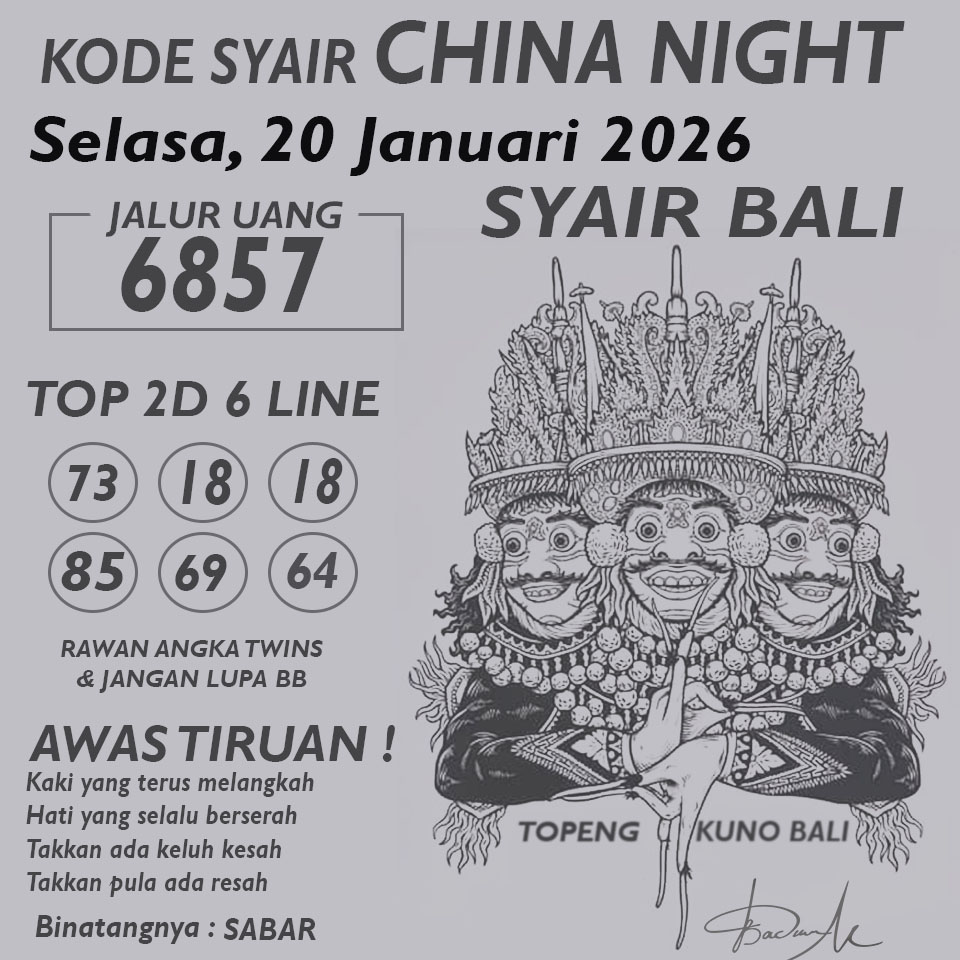 KODE SYAIR CHINA NIGHT
Selasa, 20 Januari 2026
SYAIR BALI
JALUR UANG
6857
TOP 2D 6 LINE
73 18 18
85 69 64
RAWAN ANGKA TWINS
& JANGAN LUPA BB
AWAS TIRUAN !
Kaki yang terus melangkah
Hati yang selalu berserah
Takkan ada keluh kesah
Takkan pula ada resah
Binatangnya : SABAR
TOPENG KUNO BALI